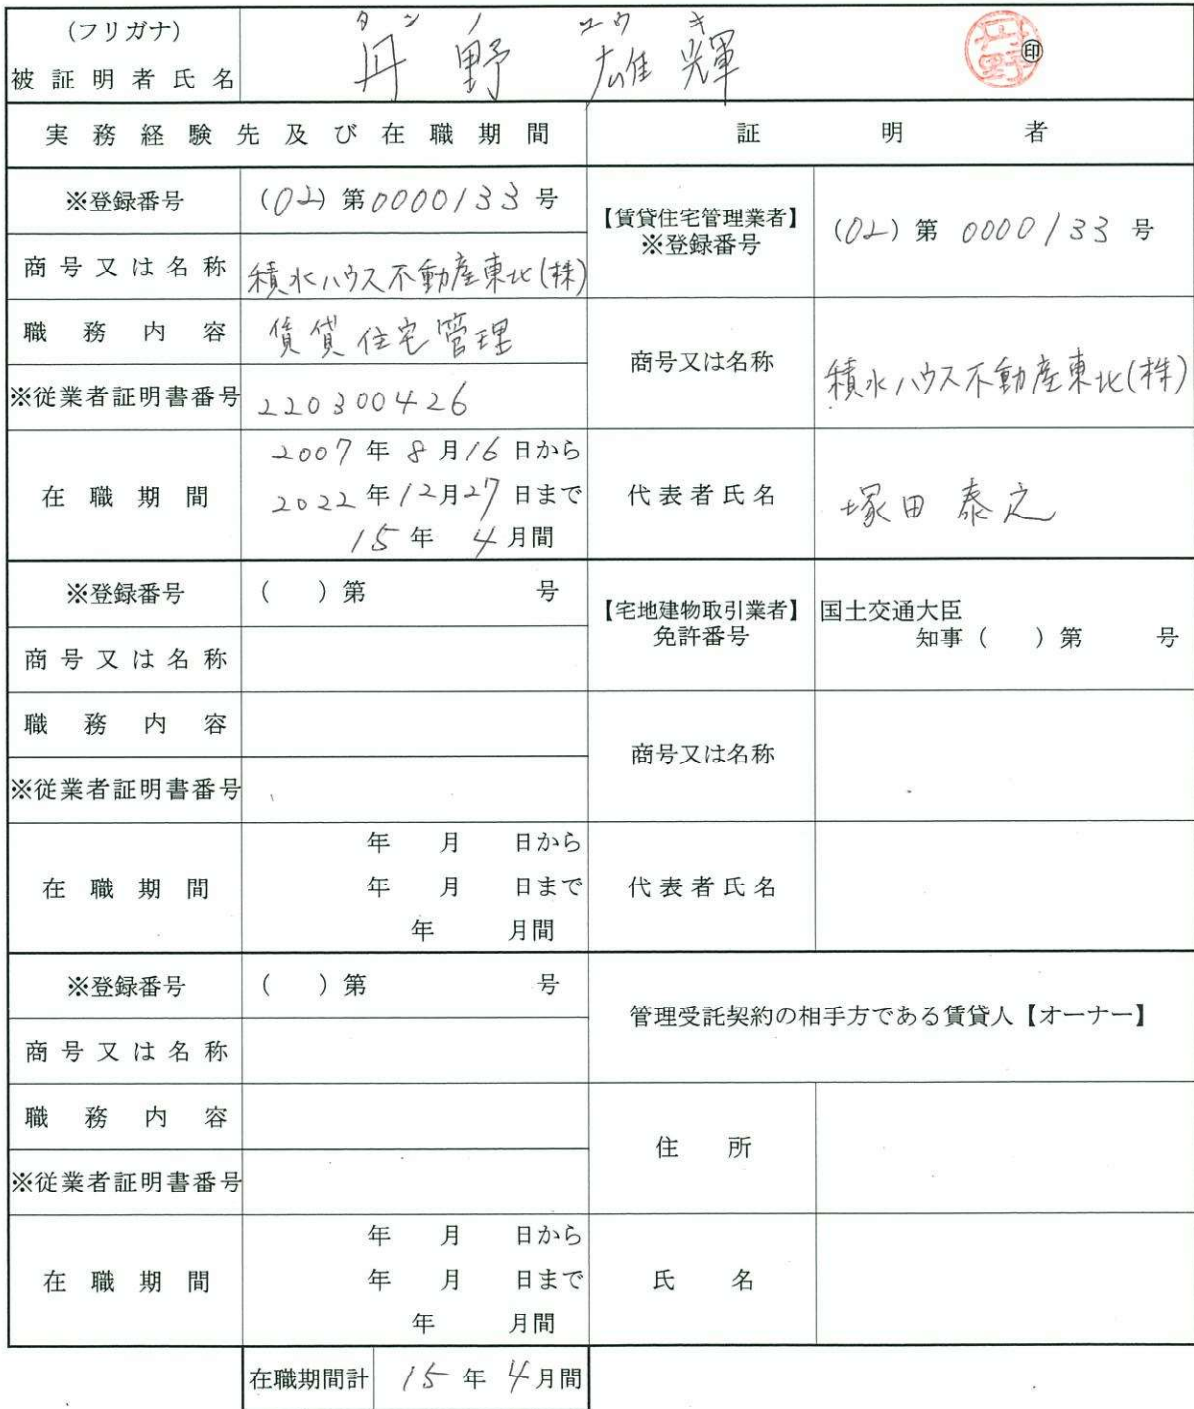 (フリガナ) タンノ ユウキ
被証明者氏名 丹野 雄輝 丹野 ㊞
実務経験先及び在職期間 証明者
※登録番号 (02) 第0000133号
【賃貸住宅管理業者】
※登録番号 (02) 第 0000133 号
商号又は名称 積水ハウス不動産東北(株)
職務内容 賃貸住宅管理
商号又は名称 積水ハウス不動産東北(株)
※従業者証明書番号 220300426
在職期間 2007年8月16日から
2022年12月27日まで
15年 4月間
代表者氏名 塚田 泰之
※登録番号 ( ) 第 号
【宅地建物取引業者】
免許番号
国土交通大臣
知事 ( ) 第 号
商号又は名称
職務内容
商号又は名称
※従業者証明書番号
在職期間 年 月 日から
年 月 日まで
年 月間
代表者氏名
※登録番号 ( ) 第 号
管理受託契約の相手方である賃貸人【オーナー】
商号又は名称
職務内容
住所
※従業者証明書番号
在職期間 年 月 日から
年 月 日まで
年 月間
氏名
在職期間計 15年 4月間